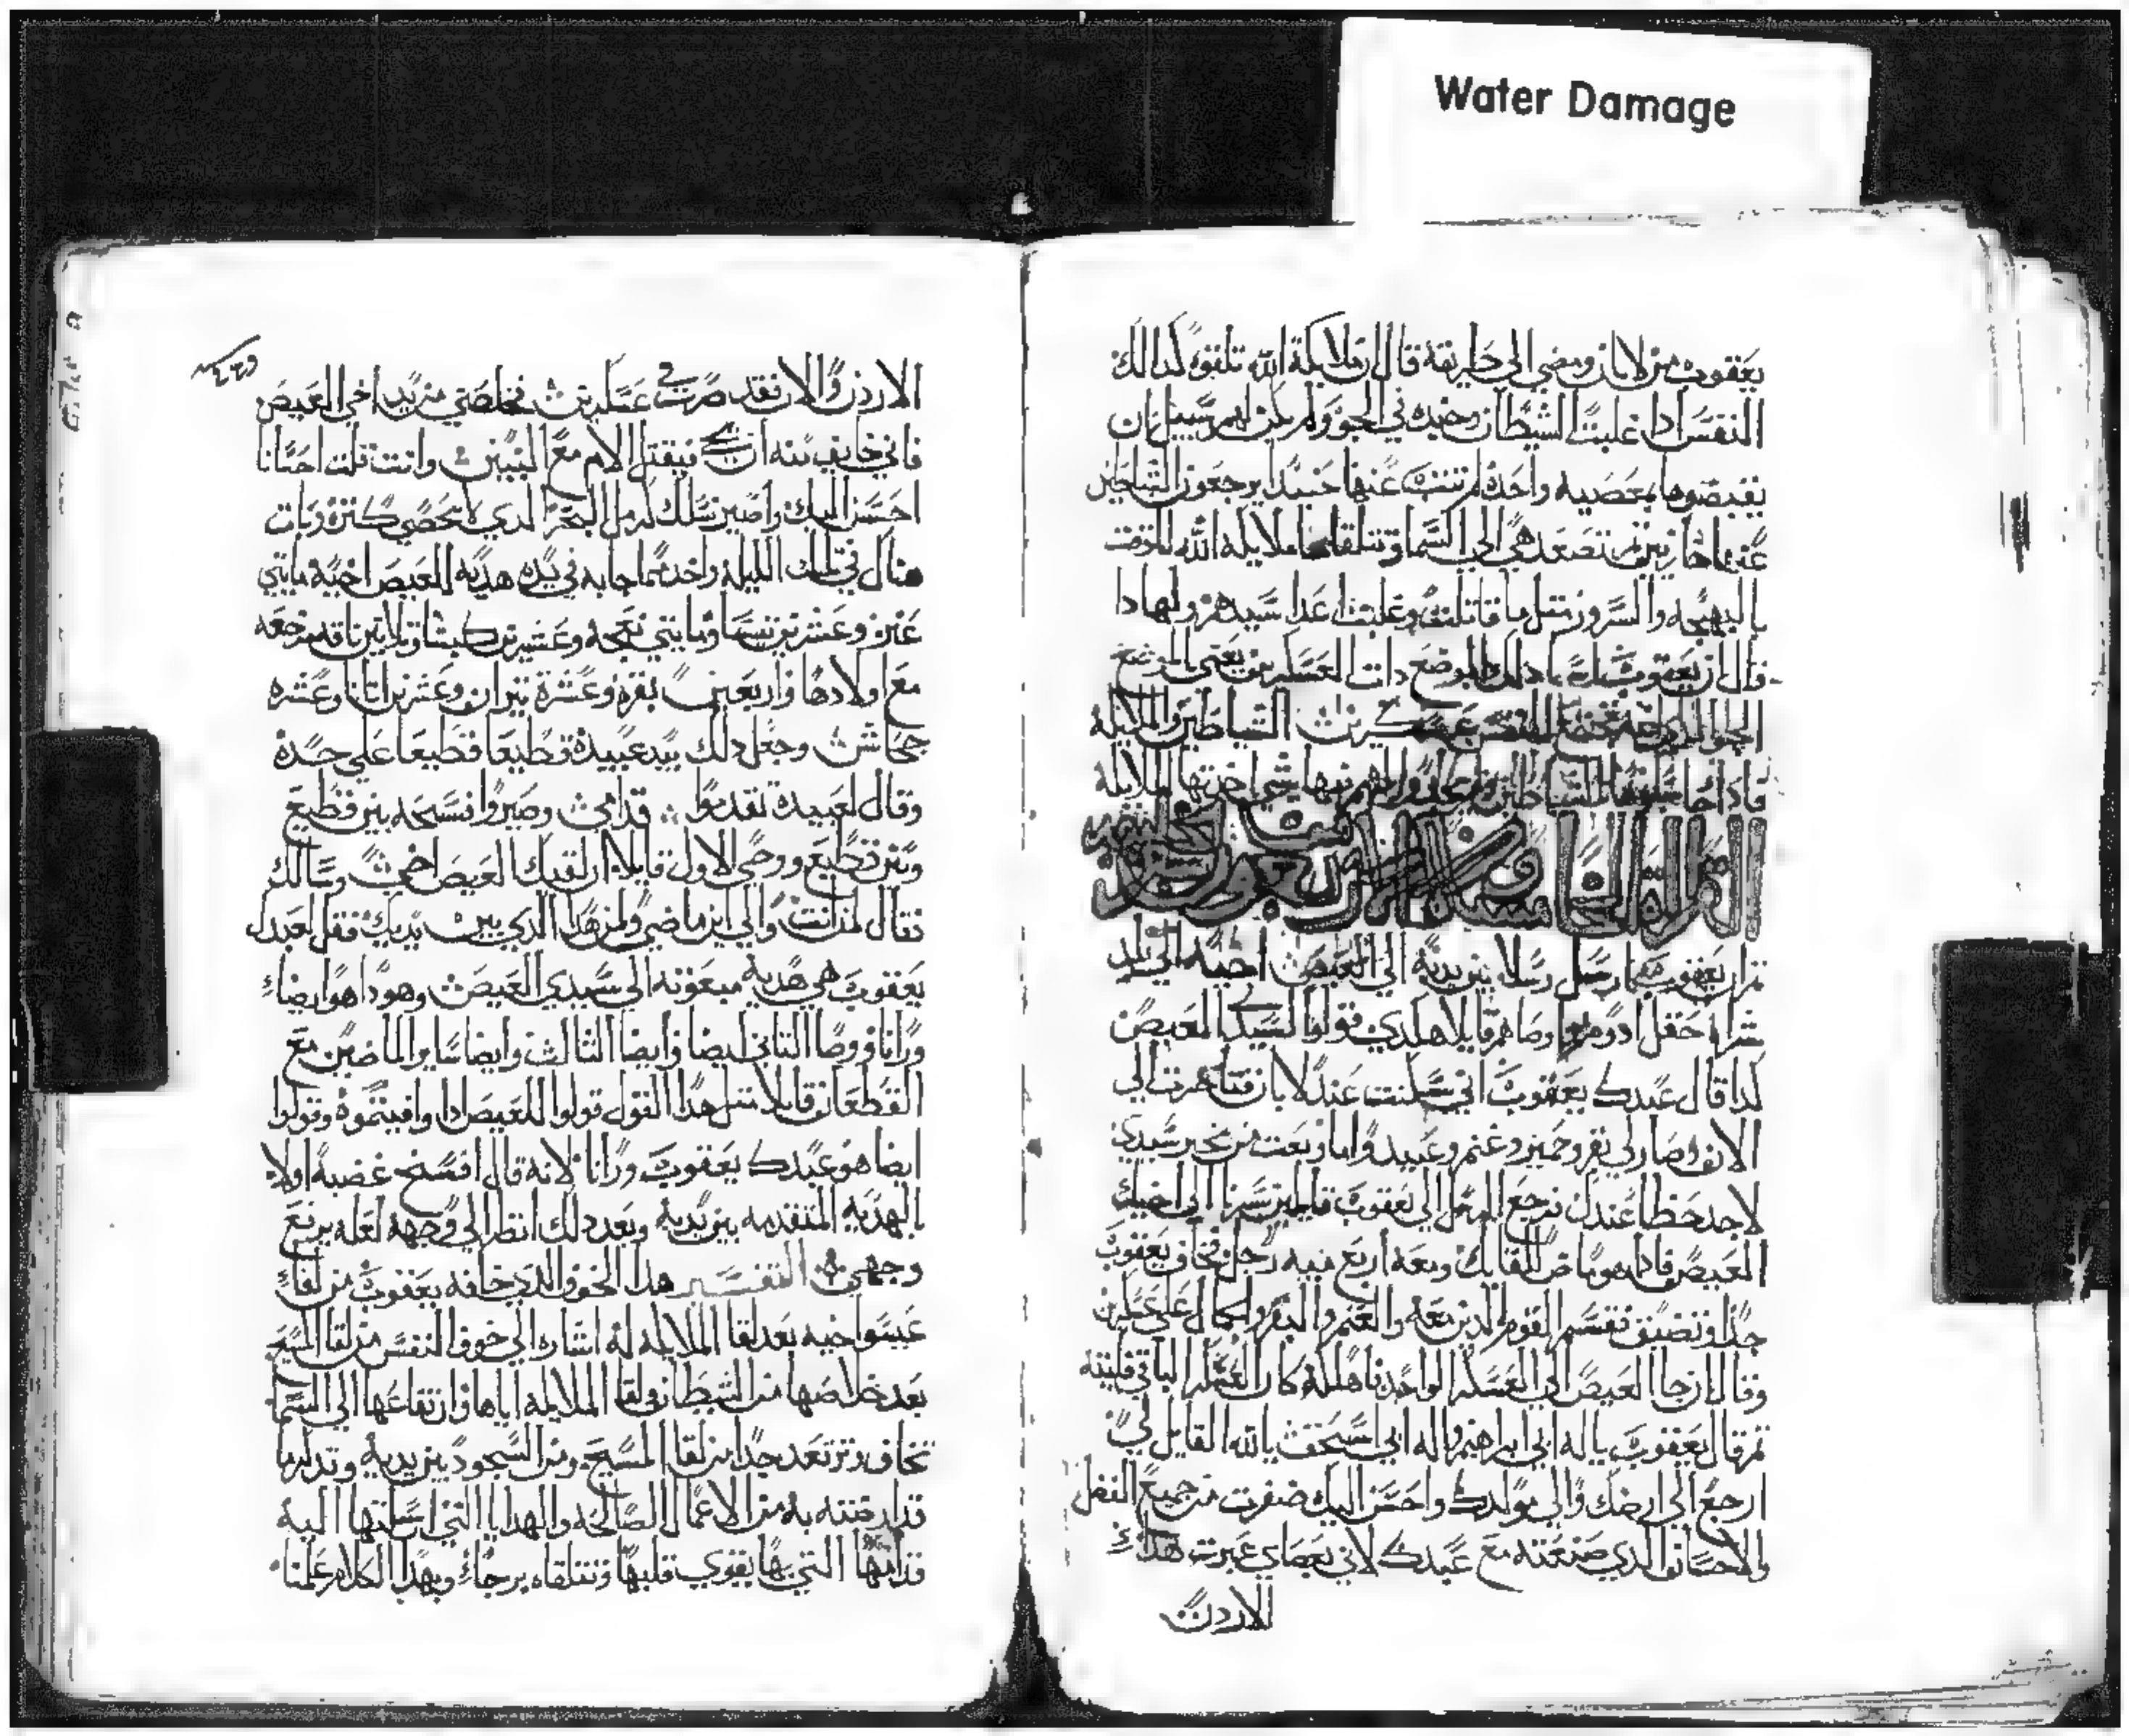 Water Damage
يعقوب من لابان ومضي الي طريقه قال ان ملايكة الله تلقوه كدالك
النفس ادا غلبت الشيطان وحيده في الجو ولم يكن لهم سبيل ان
يقبضوها بمعصيه واحده لم تتب عنها حينيدا يرجعون الشياطين
عنها خازيين ثم تصعد هي الي السما وتتلقاها ملايكة الله للوقت
بالبهجه والسرور مثل ما قاتلت وغلبت اعدا سيدهم ولهادا
قال ان يعقوب سما دلك الموضع دات العسكرين يعني الموضع
الجو الذي فيه تجتمع عسكرين الشياطين والملايكه
فادا الشياطين ولم لهم فيها شي اخدتها الملايكه
القراه الخامسه
ثم ان يعقوب ارسل رسلا بين يديه الي العيص اخيه الي بلد
شراه حقل ادوم واوصاهم قايلا هكدي قولوا لسيدي العيص
كدا قال عبدك يعقوب اني سكنت عند لابان فتاخرت الي
الان وصار لي بقر وحمير وغنم وعبيد واما وبعت من يخبر سيدي
لاجد حظا عندك فرجع الرسل الي يعقوب قايلين سرنا الي اخيك
العيص فادا هو ماض للقايك ومعه اربع ميه رجل فخاف يعقوب
جدا وتضيق فقسم القوم الدين معه والغنم والبقر والجمال علي عسكرين
وقال ان جا العيص الي العسكر الواحد فاهلكه كان العسكر الباقي فليته
ثم قال يعقوب يا اله ابي ابراهيم واله ابي اسحق يا الله القايل لي
ارجع الي ارضك والي مولدك واحسن اليك صغرت من جميع الفضل
والاحسان الدي صنعته مع عبدك لاني بعصاي عبرت هدا
الاردن
الاردن والان فقد صرت في عسكرين فخلصني من يد اخي العيص
فاني خايف منه ان يجي فيقتل الام مع البنين وانت قلت احسانا
احسن اليك واصير نسلك كرمل البحر الدي لا يحصي كتره وبات
هناك في تلك الليله واخد مما جابه في يده هديه للعيص اخيه مايتي
عنز وعشرين تيسا ومايتي نعجه وعشرين كبشا وتلاتين ناقه مرضعه
مع اولادها واربعين بقره وعشرة تيران وعشرين اتانا وعشره
جحاش وجعل دلك بيد عبيده قطيعا قطيعا علي حده
وقال لعبيده تقدموا قدامي وصيروا فسحه بين قطيع
وبين قطيع ووصي الاول قايلا ان لقيك العيص اخي وسالك
فقال لمن انت والي اين ماضي ولمن هدا الدي بين يديك فقل لعبدك
يعقوب هي هديه مبعوته الي سيدي العيص وهودا هو ايضا
ورانا ووصا التاني ايضا وايضا التالت وايضا ساير الماضيين مع
القطعان قايلا متل هدا القول قولوا للعيص ادا وافيتموه وقولوا
ايضا هو عبدك يعقوب ورانا لانه قال افسخ غضبه اولا
بالهديه المتقدمه بين يديه وبعد دلك انظر الي وجهه لعله يرفع
وجهي التفسير هدا الخوف الدي خافه يعقوب من لقا
عيسو اخيه بعد لقا الملايكه له اشاره الي خوف النفس من لقا المسيح
بعد خلاصها من الشيطان ولقا الملايكه اياها وارتفاعها الي السما
تخاف وترتعد جدا من لقا المسيح ومن السجود بين يديه وتدكر ما
قد ارضته به من الاعمال الصالحه والهدايا التي ارسلتها اليه
قدامها التي بها يقوي قلبها وتتلقاه برجا وبهدا الكلام علمنا